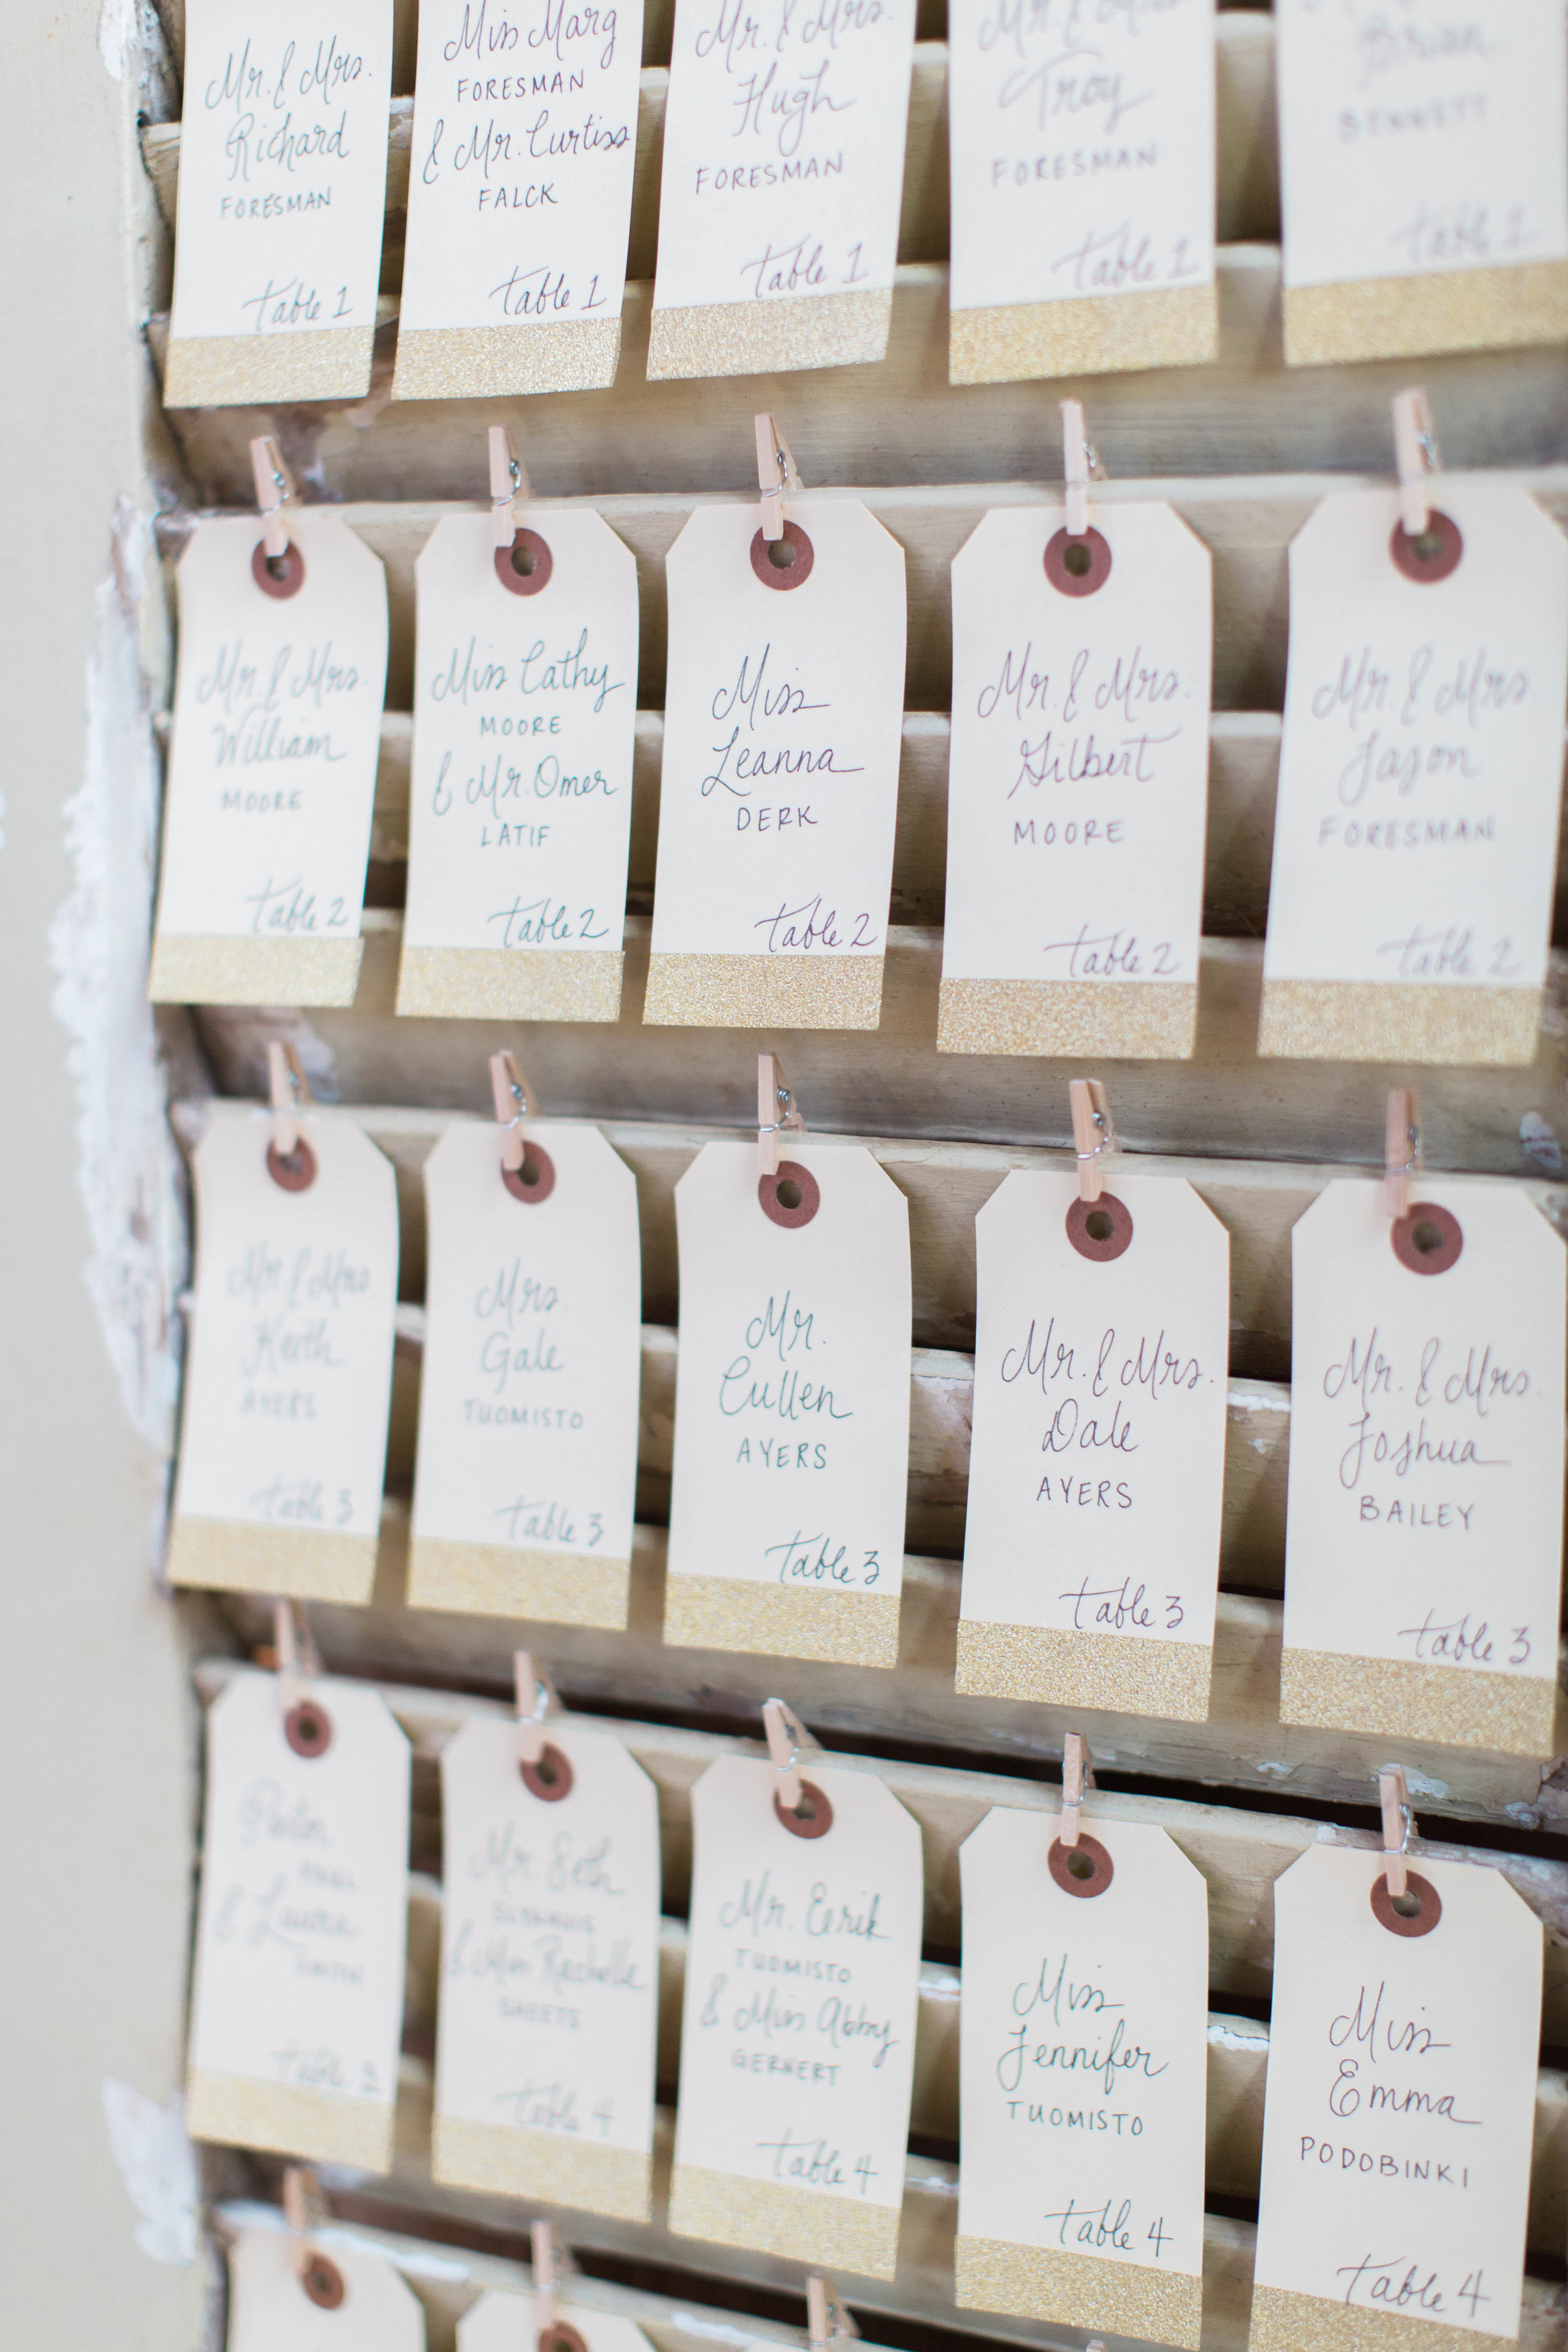 Mr. & Mrs.
Richard
FORESMAN
Table 1
Miss Marg
FORESMAN
& Mr. Curtiss
FALCK
Table 1
Mr. & Mrs.
Hugh
FORESMAN
Table 1
Mr. & Mrs.
Troy
FORESMAN
Table 1
Brian
BENNETT
Table 1
Mr. & Mrs.
William
MOORE
Table 2
Miss Cathy
MOORE
& Mr. Omer
LATIF
Table 2
Miss
Leanna
DERK
Table 2
Mr. & Mrs.
Gilbert
MOORE
Table 2
Mr. & Mrs
Jason
FORESMAN
Table 2
Mr. & Mrs.
Keith
AYERS
Table 3
Mrs.
Gale
TUOMISTO
Table 3
Mr.
Cullen
AYERS
Table 3
Mr. & Mrs.
Dale
AYERS
Table 3
Mr. & Mrs.
Joshua
BAILEY
Table 3
PAUL
& Laura
SMITH
Table 3
Mr. Seth
& Miss Rachelle
SHEETS
Table 4
Mr. Eerik
TUOMISTO
& Miss Abby
GERNERT
Table 4
Miss
Jennifer
TUOMISTO
Table 4
Miss
Emma
PODOBINKI
Table 4